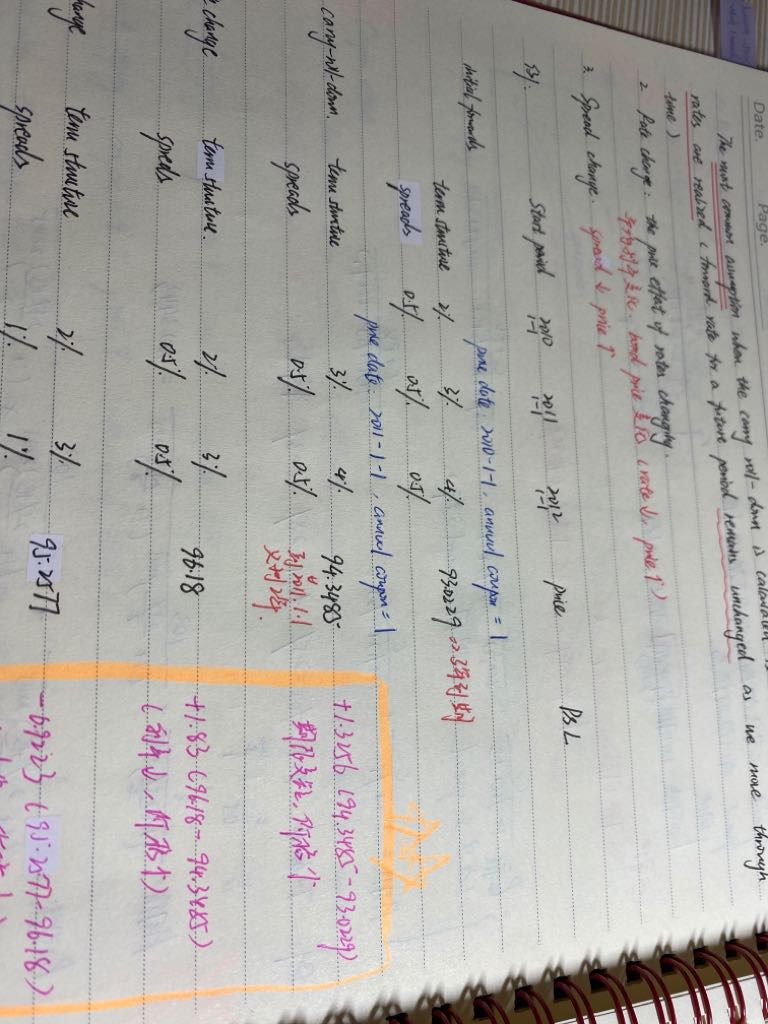 Date. Page.
The most common assumption when the carry roll-down is calculated is
rates are realized (forward rate for a future period remains unchanged as we move through
time)
2. Rate change: the pure effect of rates changing.
bond price (rate ↓. price ↑)
3. Spread change. spread ↓ price ↑
Start period 2010 1-1 2011 1-1 2012 1-1 price P&L
initial forwards price date: 2010-1-1, annual coupon = 1
term structure 2% 3% 4% 93.0229
spreads 0.5% 0.5% 0.5%
price date: 2011-1-1, annual coupon = 1
carry-roll-down term structure 3% 4% 94.3485 +1.3256 (94.3485-93.0229)
spreads 0.5% 0.5%
change term structure. 2% 3% 96.18 +1.83 (96.18-94.3485)
spreads 0.5% 0.5% (利率↓. 价格↑)
change term structure 2% 3% 95.2577 -0.9223 (95.2577-96.18)
spreads 1% 1%